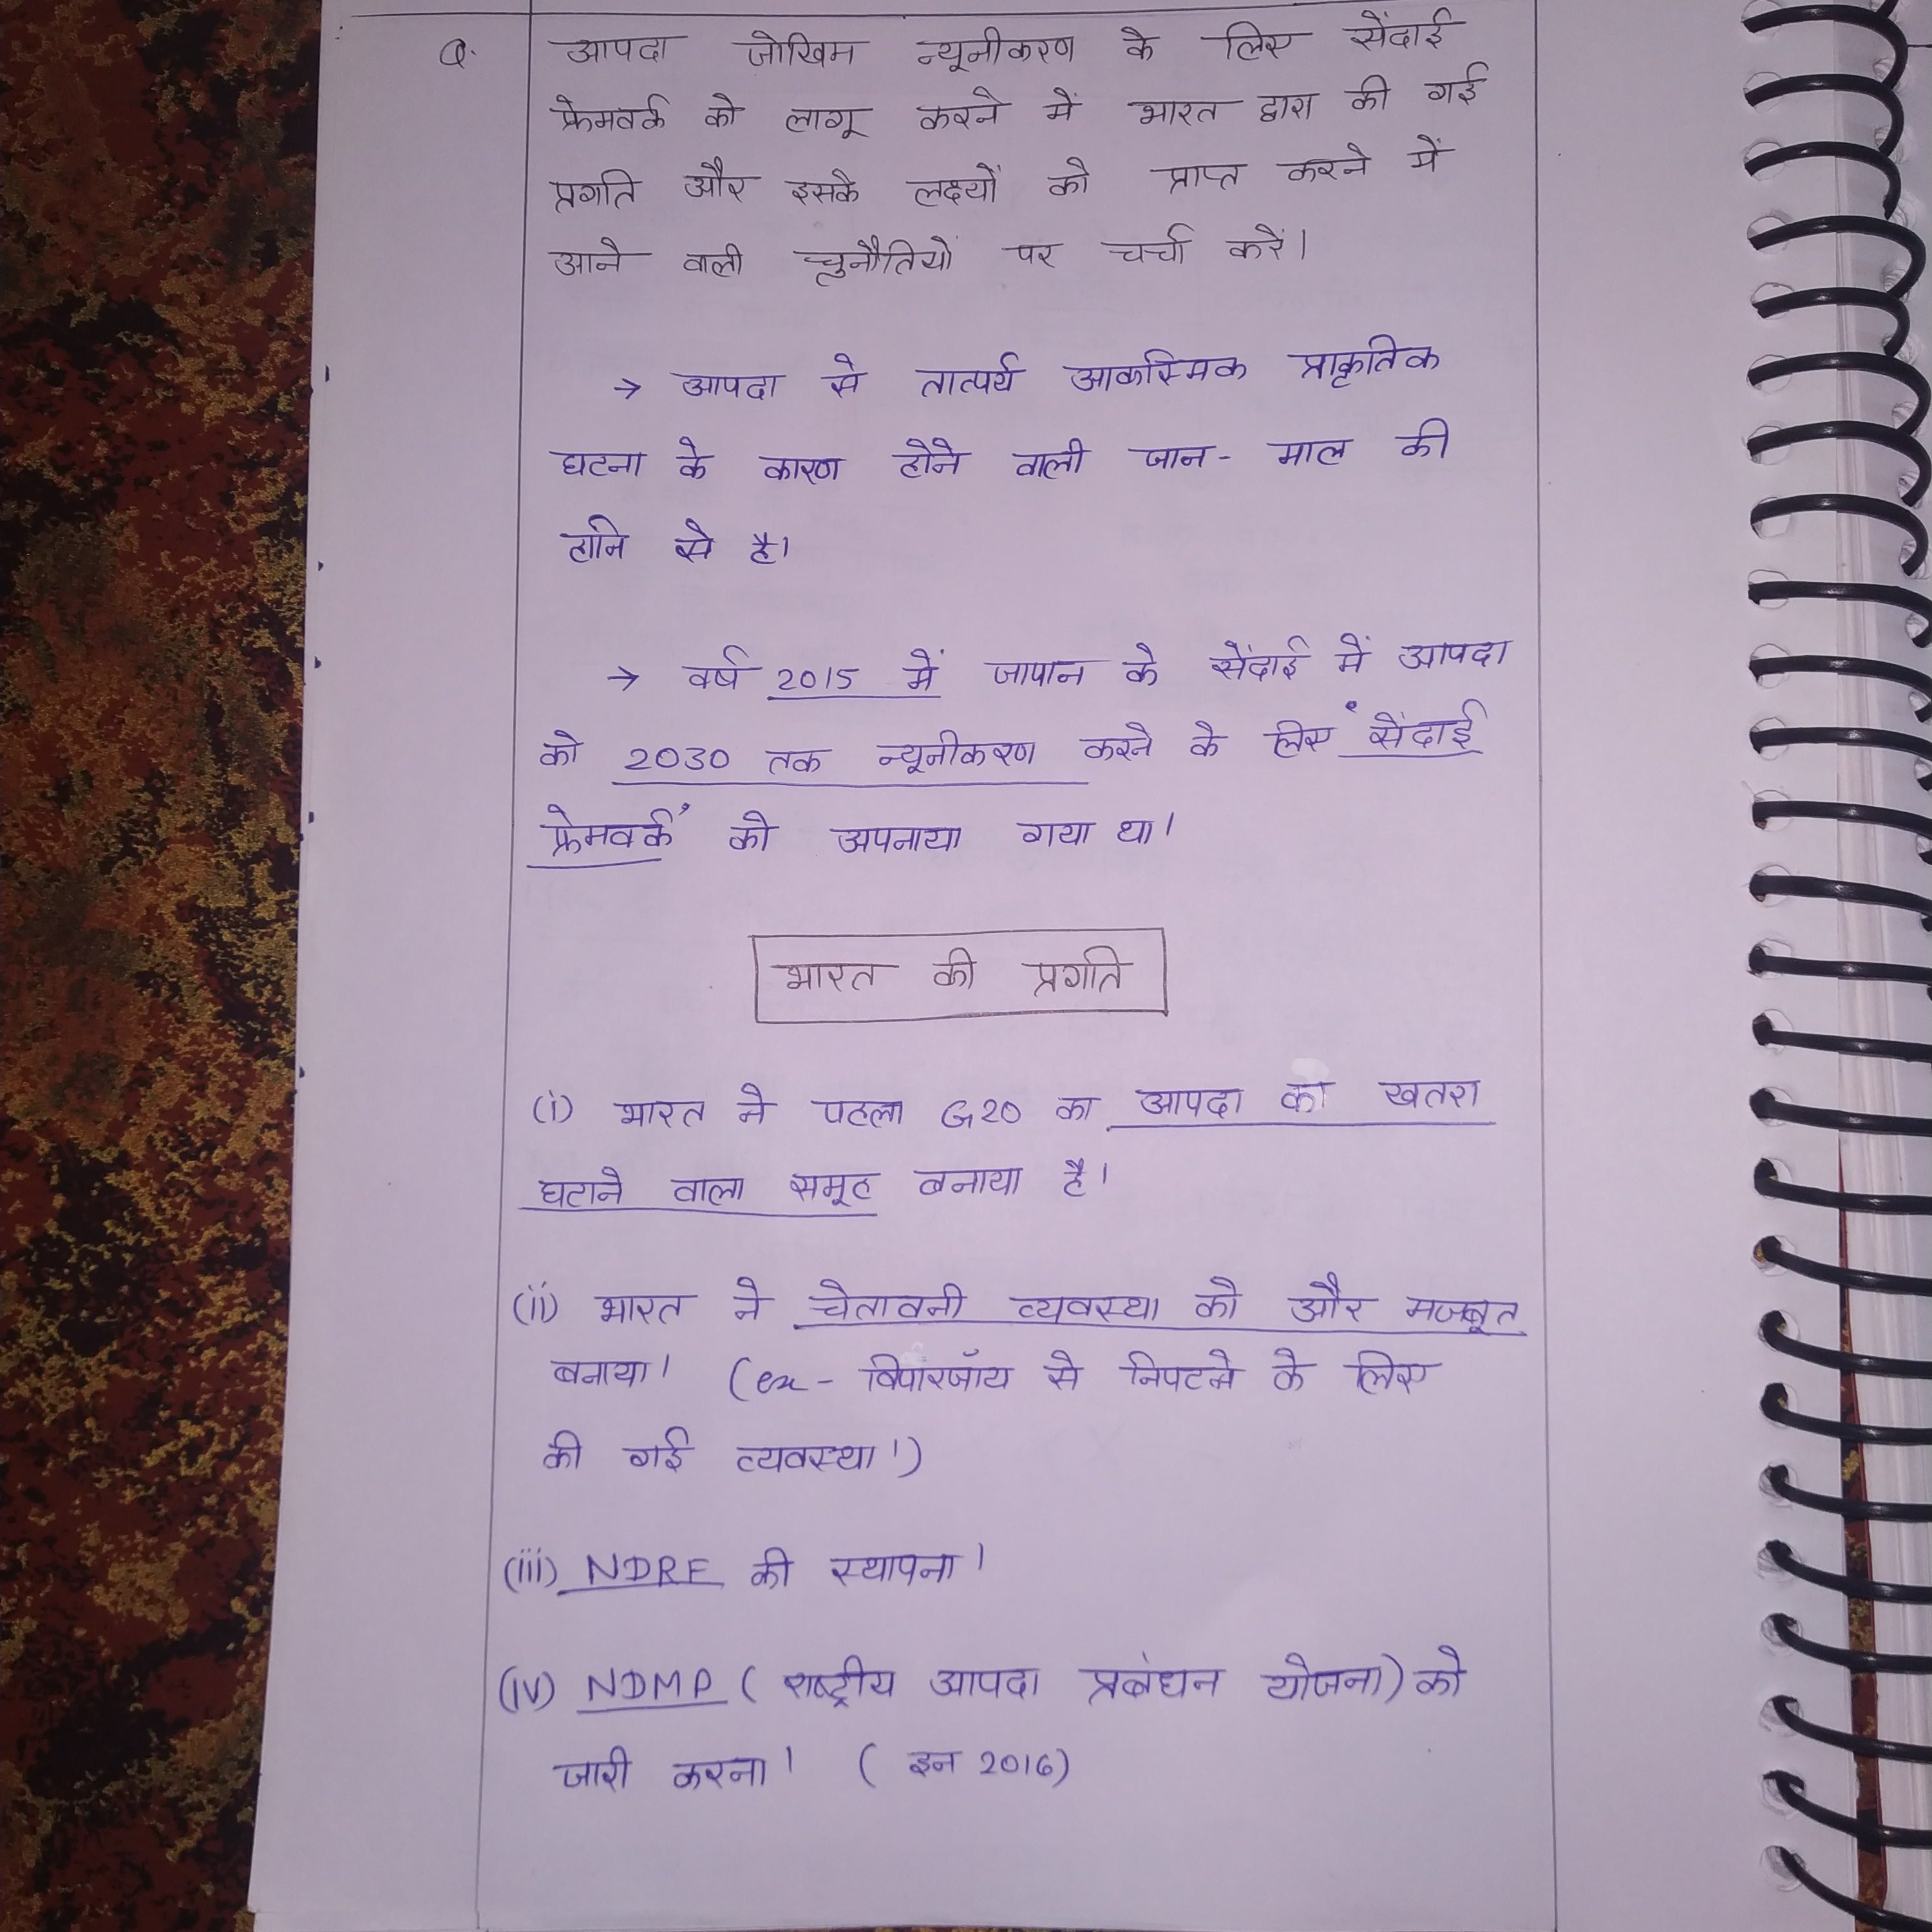 Q. आपदा जोखिम न्यूनीकरण के लिए सेंदाई
फ्रेमवर्क को लागू करने में भारत द्वारा की गई
प्रगति और इसके लक्ष्यों को प्राप्त करने में
आने वाली चुनौतियों पर चर्चा करें।
→ आपदा से तात्पर्य आकस्मिक प्राकृतिक
घटना के कारण होने वाली जान - माल की
हानि से है।
→ वर्ष 2015 में जापान के सेंदाई में आपदा
को 2030 तक न्यूनीकरण करने के लिए 'सेंदाई
फ्रेमवर्क' को अपनाया गया था।
भारत की प्रगति
(i) भारत ने पहला G20 का आपदा का खतरा
घटाने वाला समूह बनाया है।
(ii) भारत ने चेतावनी व्यवस्था को और मजबूत
बनाया। (ex - बिपारजॉय से निपटने के लिए
की गई व्यवस्था।)
(iii) NDRF की स्थापना।
(iv) NDMP ( राष्ट्रीय आपदा प्रबंधन योजना) को
जारी करना। ( इन 2016)